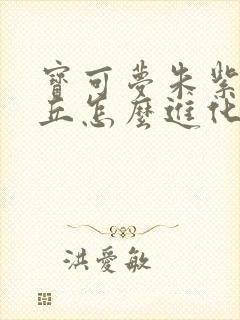 寶可夢朱紫
丘怎麼進化
洪愛敏